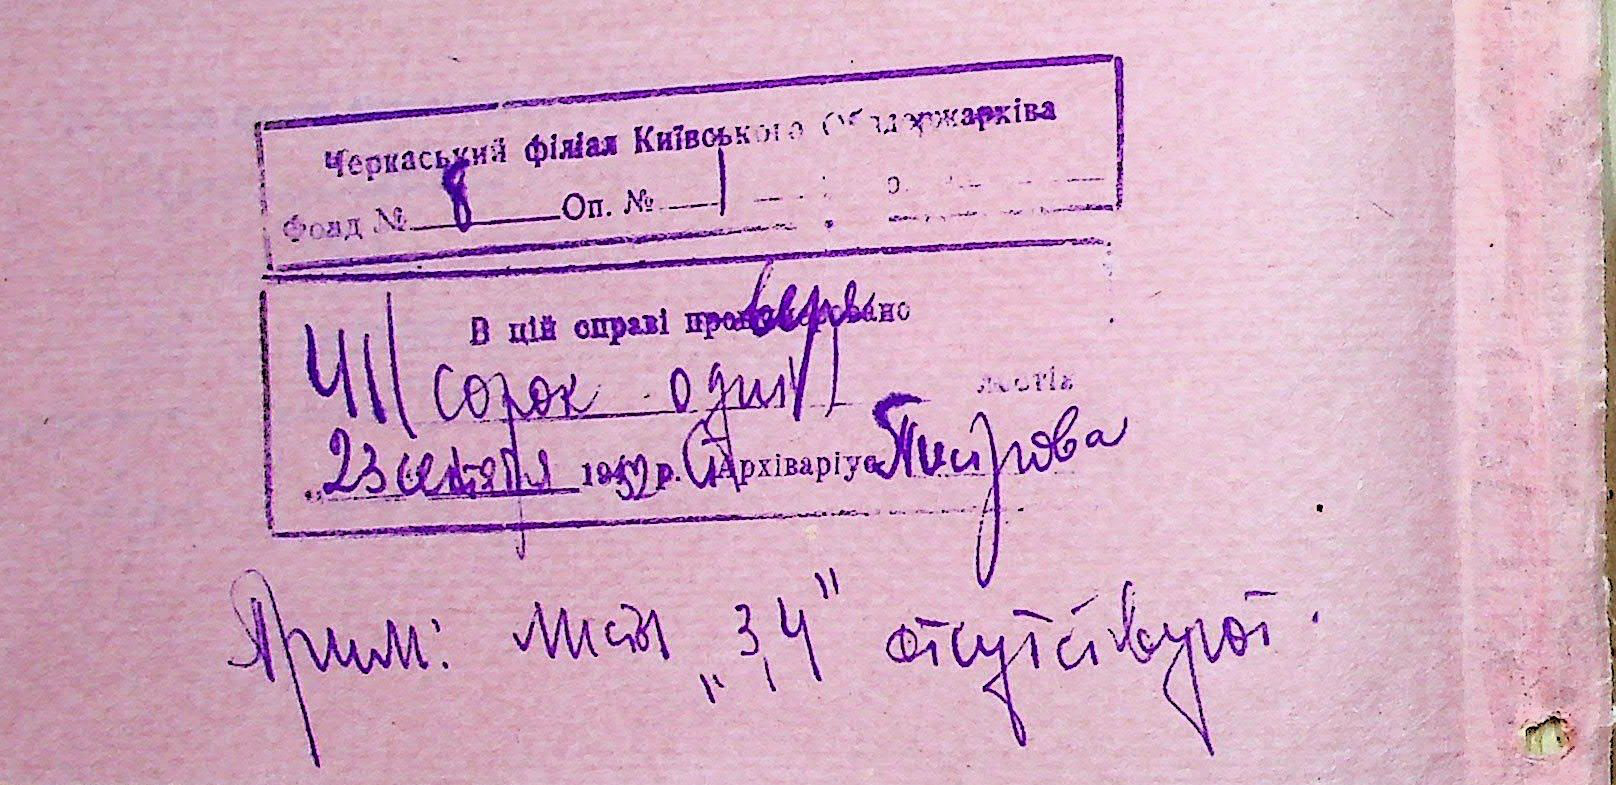 Черкаський філіал Київського Облдержархіва
Фонд № 8 Оп. № 1
В цій справі пронумеровано
41 (сорок один) листів
„23 сентября 1952 р. Ст. Архіваріус Пестрова
Прим: листы „3,4" отсутствуют.